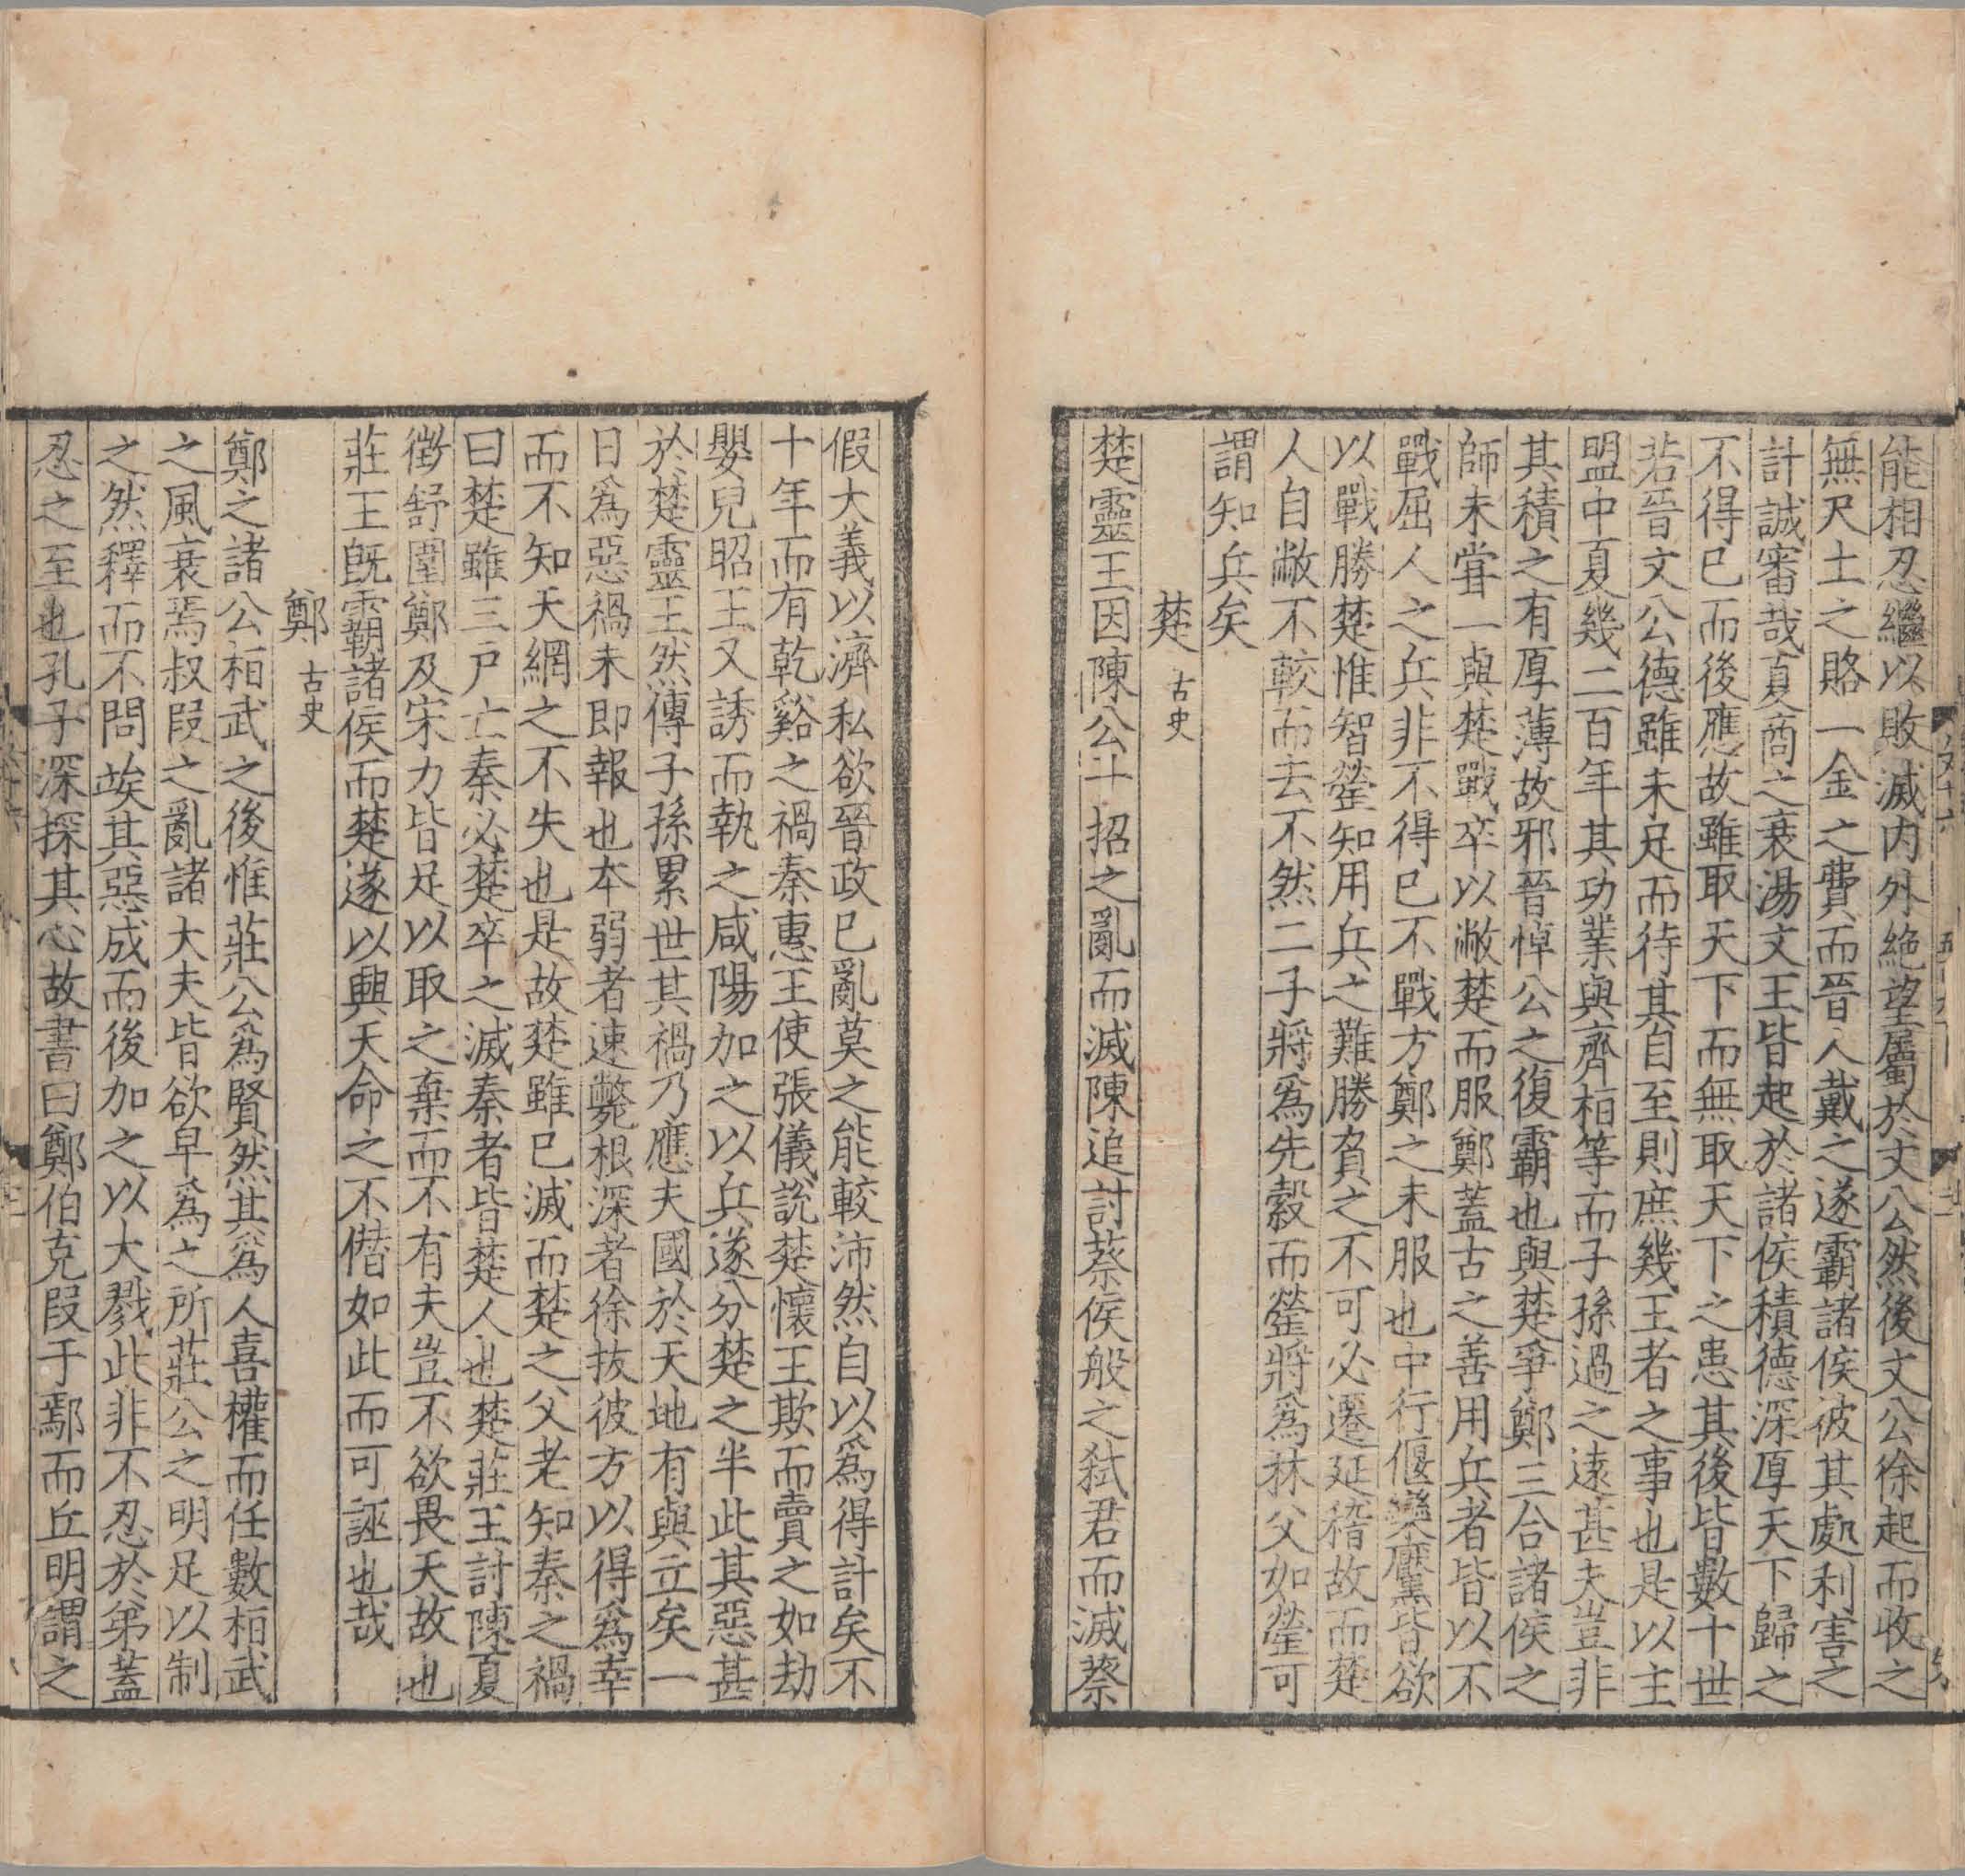 能相忍繼以敗滅内外絶望屬於文公然後文公徐起而收之
無尺土之賂一金之費而晉人戴之遂霸諸侯彼其處利害之
計誠審哉夏商之衰湯文王皆起於諸侯積德深厚天下歸之
不得已而後應故雖取天下而無取天下之患其後皆數十世
若晉文公德雖未足而待其自至則庶幾王者之事也是以主
盟中夏幾二百年其功業與齊桓等而子孫過之遠甚夫豈非
其積之有厚薄故邪晉悼公之復霸也與楚爭鄭三合諸侯之
師未嘗一與楚戰卒以敝楚而服鄭蓋古之善用兵者皆以不
戰屈人之兵非不得已不戰方鄭之未服也中行偃欒黶皆欲
以戰勝楚惟智罃知用兵之難勝負之不可必遷延稽故而楚
人自敝不較而去不然二子將爲先縠而罃將爲林父如罃可
謂知兵矣
楚 古史
楚靈王因陳公子招之亂而滅陳追討蔡侯般之弒君而滅蔡
假大義以濟私欲晉政已亂莫之能較沛然自以爲得計矣不
十年而有乾谿之禍秦惠王使張儀說楚懷王欺而賣之如劫
嬰兒昭王又誘而執之咸陽加之以兵遂分楚之半此其惡甚
於楚靈王然傳子孫累世其禍乃應夫國於天地有與立矣一
日爲惡禍未即報也本弱者速斃根深者徐拔彼方以得爲幸
而不知天網之不失也是故楚雖已滅而楚之父老知秦之禍
曰楚雖三戶亡秦必楚卒之滅秦者皆楚人也楚莊王討陳夏
徵舒圍鄭及宋力皆足以取之棄而不有夫豈不欲畏天故也
莊王既霸諸侯而楚遂以興天命之不僭如此而可誣也哉
鄭 古史
鄭之諸公桓武之後惟莊公爲賢然其爲人喜權而任數桓武
之風衰焉叔段之亂諸大夫皆欲早爲之所莊公之明足以制
之然釋而不問俟其惡成而後加之以大戮此非不忍於弟蓋
忍之至也孔子深探其心故書曰鄭伯克段于鄢而丘明謂之